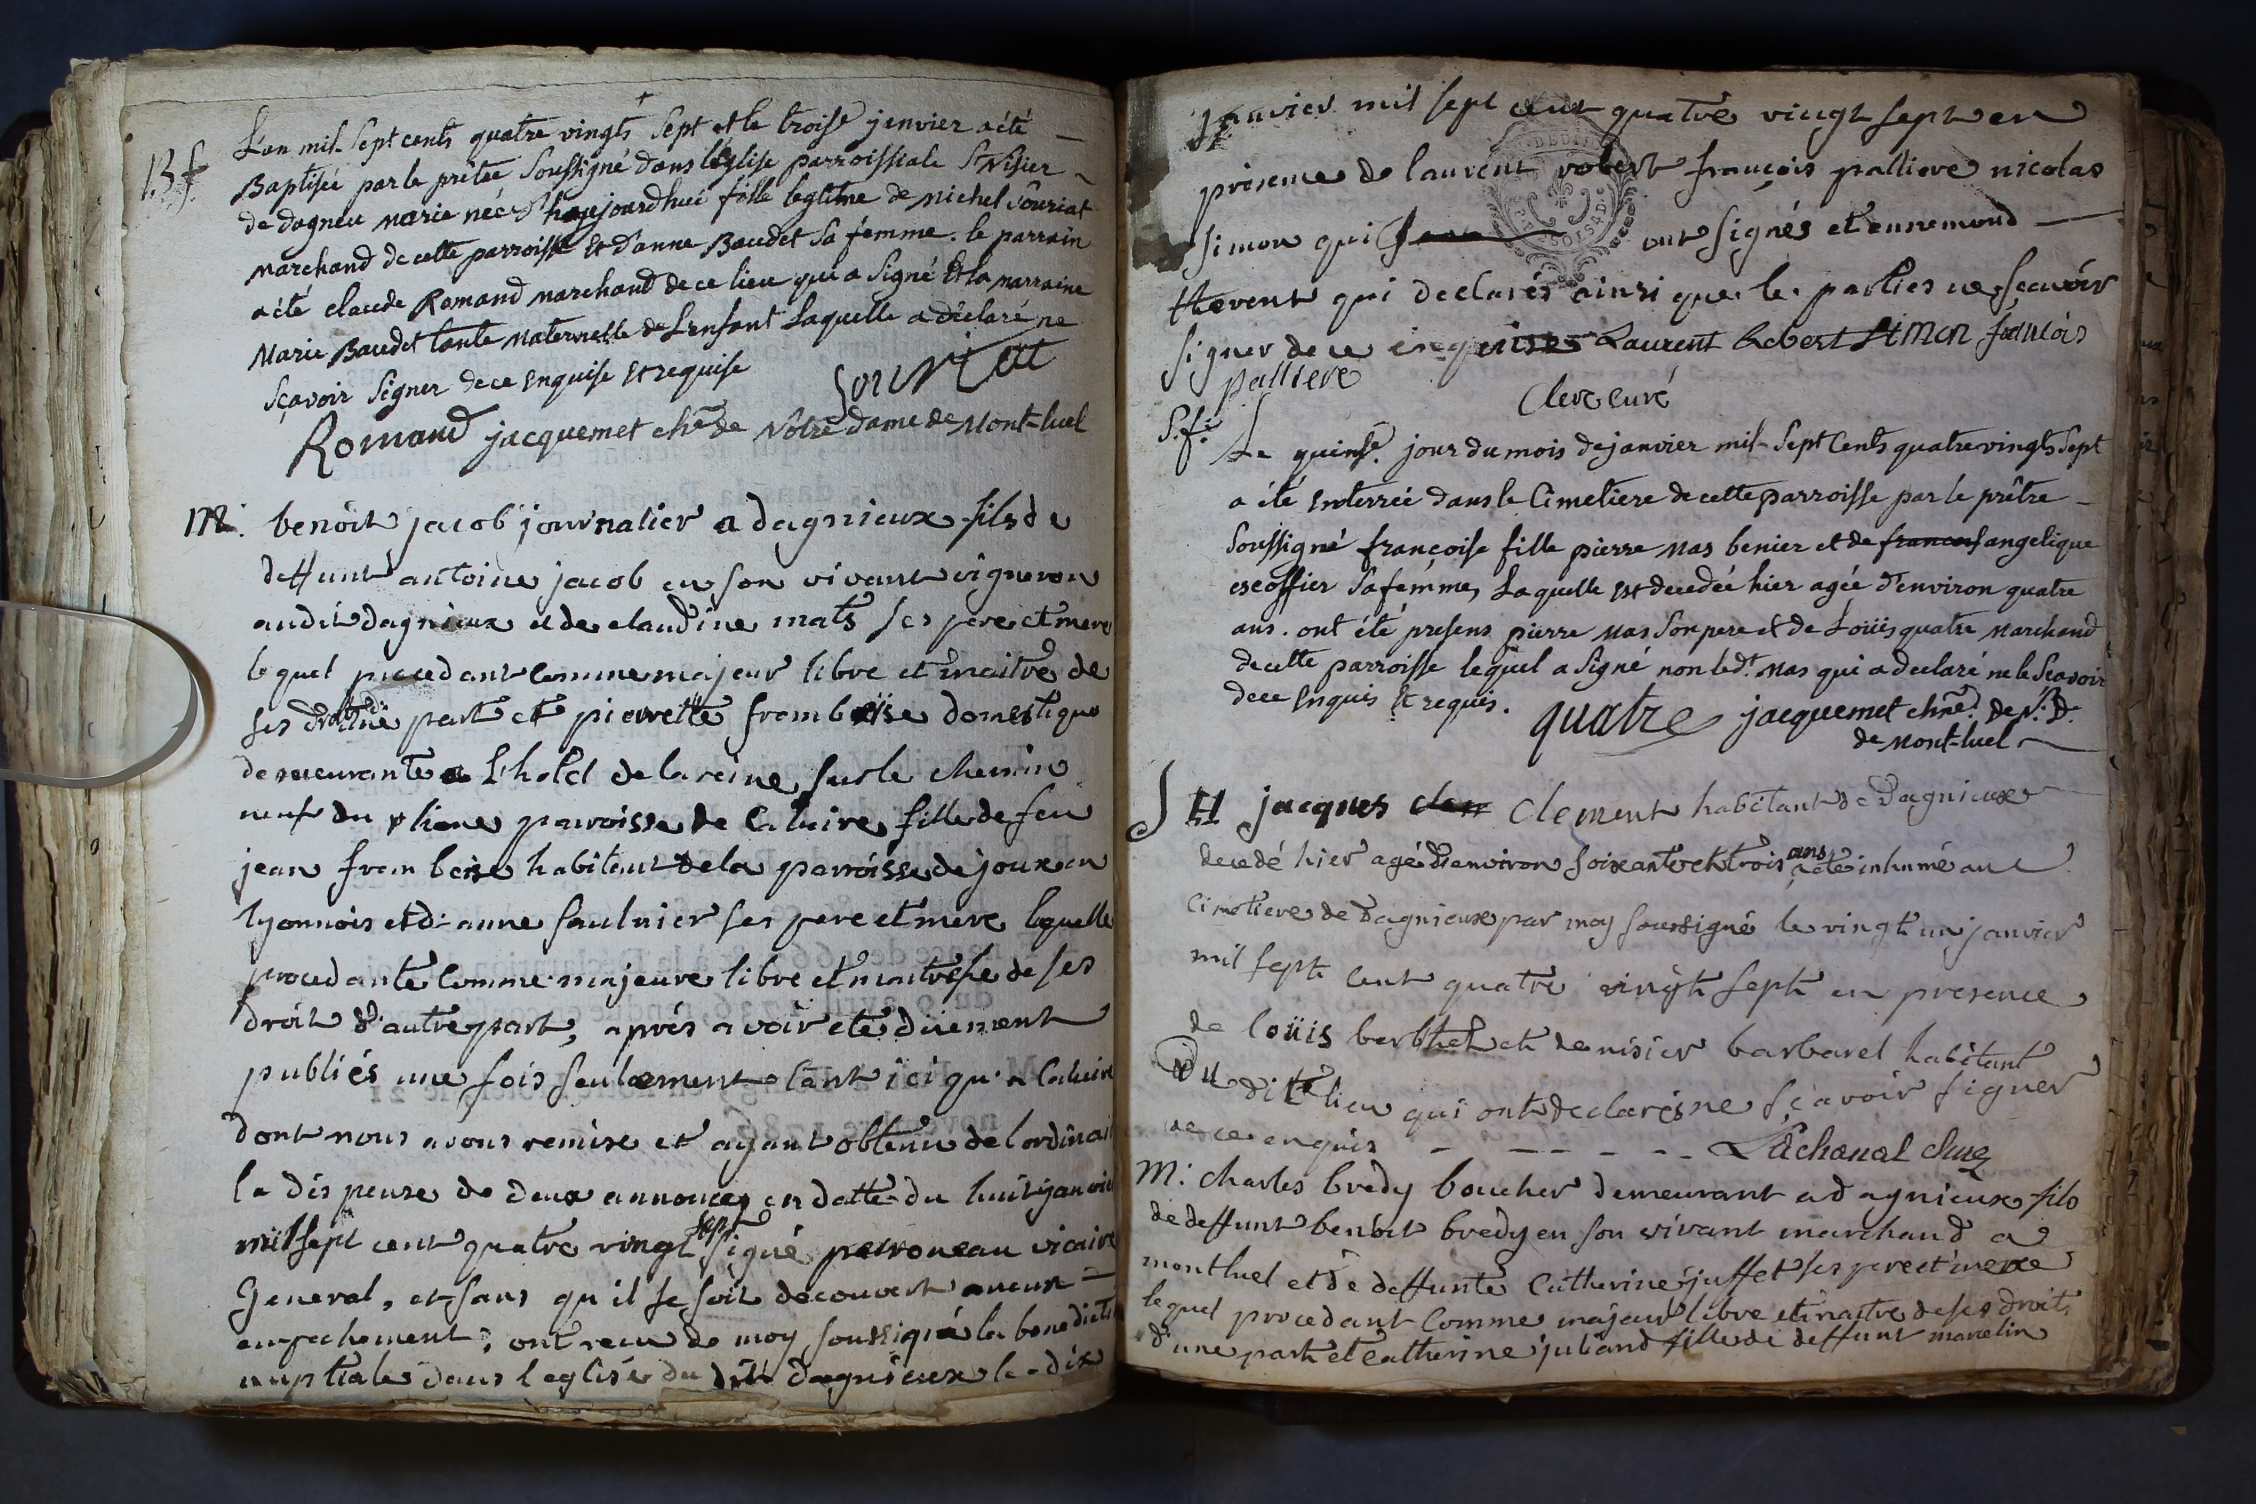 B. f.
L'an mil Sept cents quatre vingts Sept et le troise janvier a été
Baptisée par le prêtre Soussigné dans l'église parroissiale St Nisier
de dagneu marie née aujourdhui fille legitime de michel Souriat
marchand de cette parroisse Et d'anne Baudet Sa fémme. le parrain
a été claude Romand marchand de ce lieu qui a Signé Et la marraine
Marie Baudet tante maternelle de L'enfant Laquelle a déclaré ne
Sçavoir Signer de ce Enquise Et requise
Souriat
Romand jacquemet chne de Nôtre Dame de Mont-luel
M. benôit jacob journalier a dagnieux fils de
deffunt antoine jacob en son vivant vigneron
audit dagnieux et de claudine mats ses pere et mere
lequel procedant comme majeur libre et maitre de
ses droits d'une part et pierrette framboise domestique
demeurante a L'hotel de la reine sur le chemin
neuf du rhone parroisse de Caluire fille de feu
jean framboise habitant de la parroisse de joux en
lyonnois et d'anne saulnier ses pere et mere laquelle
procedante comme majeure libre et maitresse de ses
droit d'autre part, aprés avoir eté düement
publiés une fois seulement tant ici qu'a Caluire
dont nous avons remise et ayant obtenu de l'ordinai
la dispense de deux annonces en datte du huit janvi
mil sept cent quatre vingt sept signé perroneau vicaire
General, et sans qu'il se soit decouvert aucun
empechement; ont recu de moy soussigné la benedicti
nuptiale dans l'eglise du dit dagnieux le dix
janvier mil sept cent quatre vingt sept en
presence de laurent robert françois palliere nicolas
simon qui ont signés et ennemond
thevent qui declarés ainsi que le parties ne sçavoir
signer de ce enquises Laurent Robert Simon françois
palliere
Clerc curé
S. f. Le quinse. jour du mois de janvier mil Sept Cents quatre vingts Sept
a été Enterrée dans le Cimetiere de cette parroisse par le prêtre
Soussigné françoise fille pierre Mas benier et de francois angelique
escoffier Sa femme, Laquelle est decedée hier agée d'environ quatre
ans. ont été presens pierre Mas Son pere et de Loüis quatre Marchand
de cette parroisse lequel a Signé non led.t Mas qui a declaré ne le Scavoir
de ce Enquis Et requis. quatre jacquemet chne. de N. D.
de Mont-luel
S H jacques clem Clement habitant de Dagnieux
decedé hier agé d'environ soixante et trois ans a eté inhumé au
Cimetiere de Dagnieux par moy soussigné le vingt un janvier
mil sept cent quatre vingt sept en presence
de loüis berthet et de nisier barbaret habitant
du dit lieu qui ont declarés ne sçavoir signer
de ce enquis Lachanal chne
M: charles bredy boucher demeurant a dagnieux fils
de deffunt benôit bredy en son vivant marchand a
montluel et de deffunte Catherine juffet ses pere et mere
lequel procedant comme majeur libre et maitre de ses droits
d'une part et Catherine juliand fille de deffunt marcelin